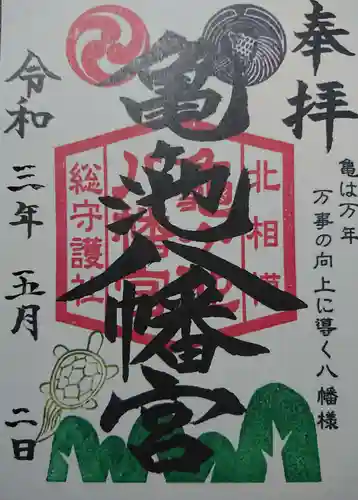 奉拝
亀は万年
万事の向上に導く八幡様
北相模
亀ヶ池
八幡宮
総守護社
亀ヶ池八幡宮
令和三年五月二日